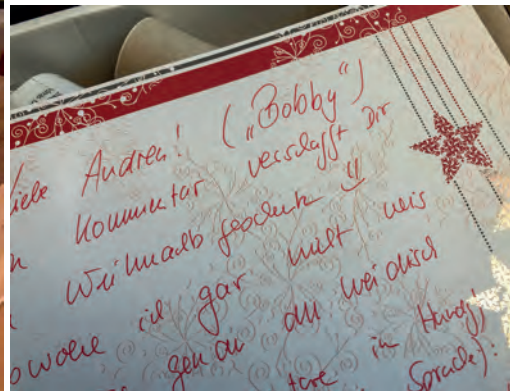 iebe Andrea! („Bobby“)
Kommentar verschafft Dir
Weihnachtsgeschenk
owohl ich gar nicht weis
genau du weiblich
in Hundj
Sprache).